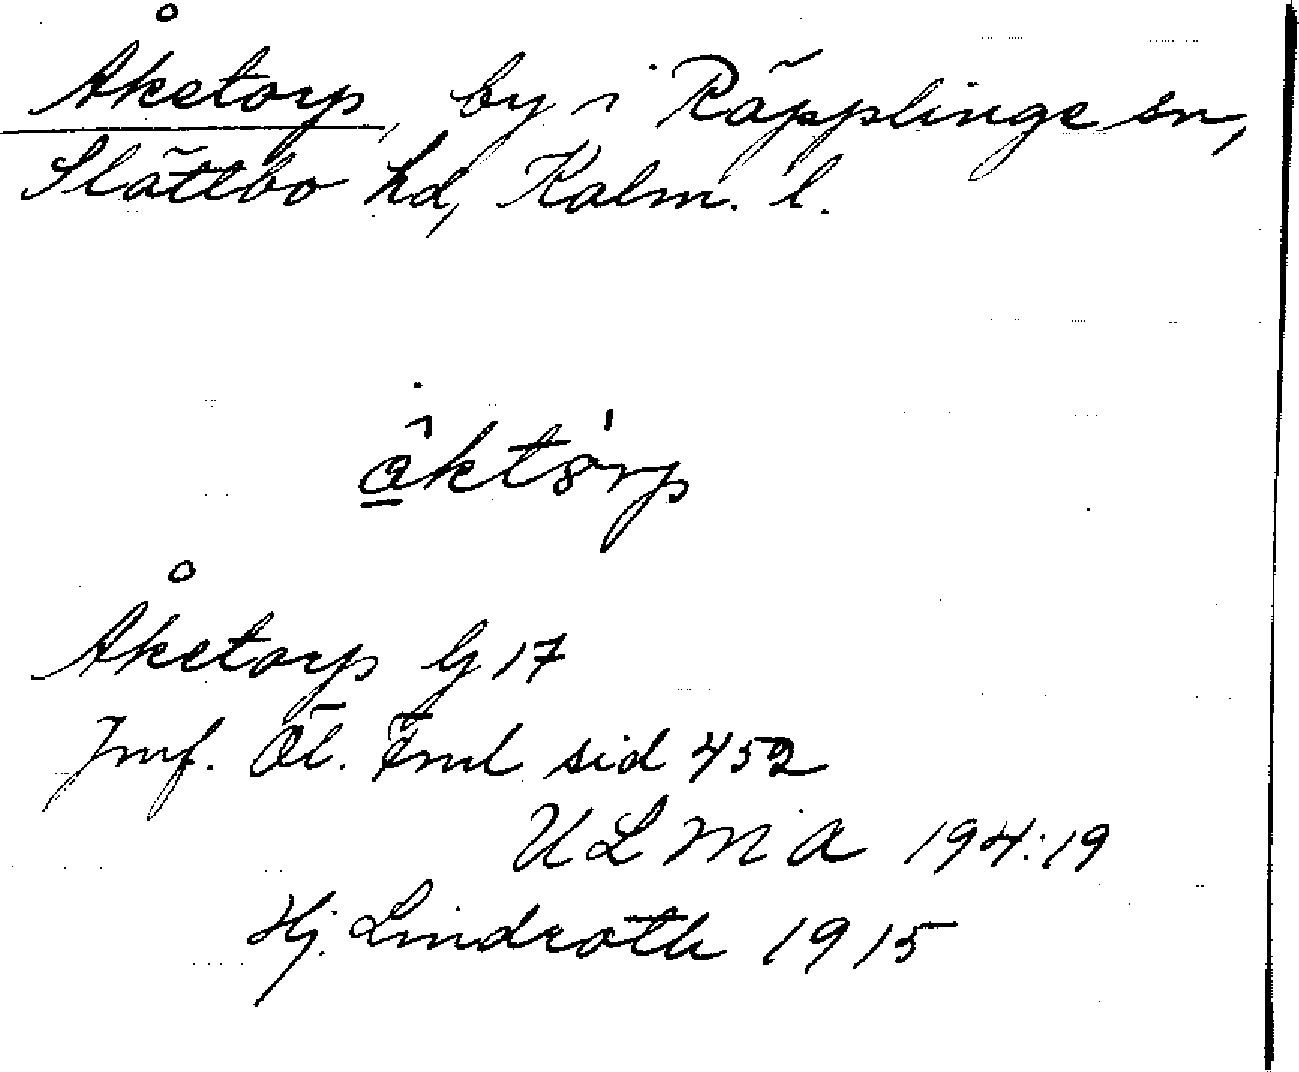 Åketorp, by i Räpplinge sn,
Slättbo hd, Kalm. l.
åktörp
Åketorp G 17
Jmf. Öl. Fml sid 452
ULMA 194:19
Hj. Lindroth 1915